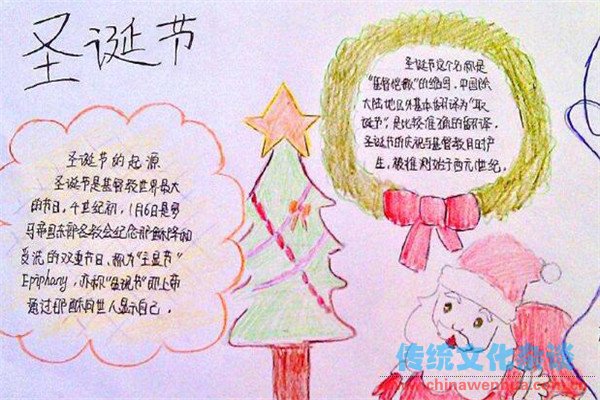 圣诞节
圣诞节的起源
圣诞节是基督教世界最大
的节日，4世纪初，1月6日是罗
马帝国东部各教会纪念耶稣降和
受洗的双重节日，称为"主显节"
Epiphany，亦称"显现节"即上帝
通过耶稣向世人显示自己。
圣诞节这个名称是
"基督弥撒"的缩写，中国除
大陆地区外基本翻译为"耶
诞节"，是比较准确的翻译。
圣诞节的庆祝与基督教同时产
生，被推测始于西元1世纪。
传统文化杂谈
www.chinawenhua.com.cn